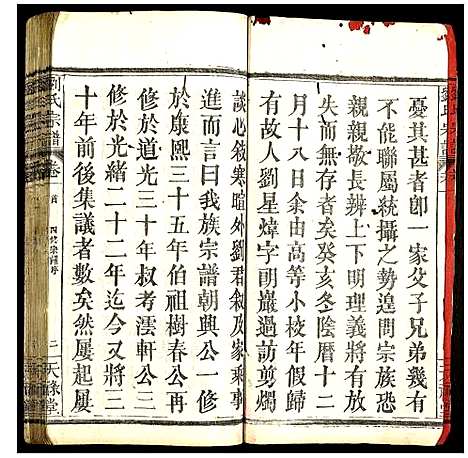 憂其甚者卽一家父子兄弟幾有
不能聯屬統攝之勢遑問宗族恐
親親長長辨上下明理義將有放
失而無存者矣癸亥冬陰曆十二
月十八日余由高等小校年假歸
有故人劉星煒字朗巖過訪剪燭
談心敍寒暄外劉君敍及家乘事
進而言曰我族宗譜朝興公一修
於康熙三十五年伯祖樹春公再
修於道光三十年叔考澐軒公三
修於光緒二十二年迄今又將三
十年前後集議者數矣然屢起屢
劉氏宗譜
卷首
四修宗譜序
二
天祿堂